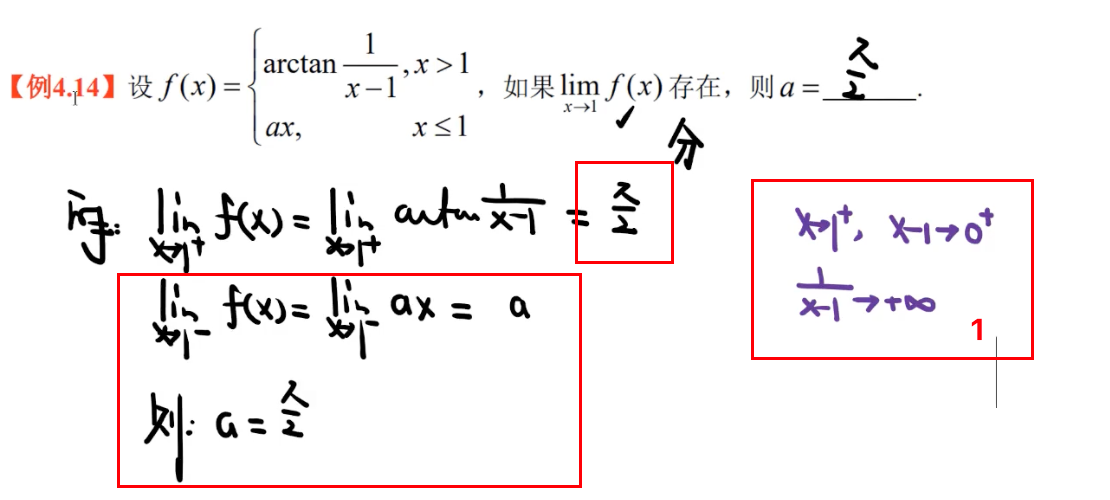 【例4.14】设 f(x) = { arctan 1/(x−1), x > 1 ; ax, x ≤ 1 , 如果 lim_{x→1} f(x) 存在，则 a = π/2 .
✓ 分
lim_{x→1⁺} f(x) = lim_{x→1⁺} arctan 1/(x−1) = π/2
lim_{x→1⁻} f(x) = lim_{x→1⁻} ax = a
则: a = π/2
x→1⁺, x−1→0⁺
1/(x−1) → +∞
1